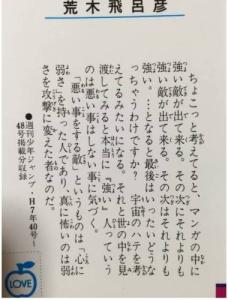 荒木飛呂彦
ちょこっと考えてると、マンガの中に
強い敵が出て来る。その次にそれよりも
強い敵が出て来る。その次はそれよりも
強い。…となると最後はいったいどうな
っちゃうわけですか？ 宇宙のハテを考
えてるみたいになる。それと世の中を見
渡してみると本当に『強い』人っていう
のは悪い事はしない事に気づく。
「悪い事をする敵」というものは「心に
弱さ」を持った人であり、真に怖いのは弱
さを攻撃に変えた者なのだ。
●週刊少年ジャンプ・H7年40号〜
48号掲載分収録
LOVE